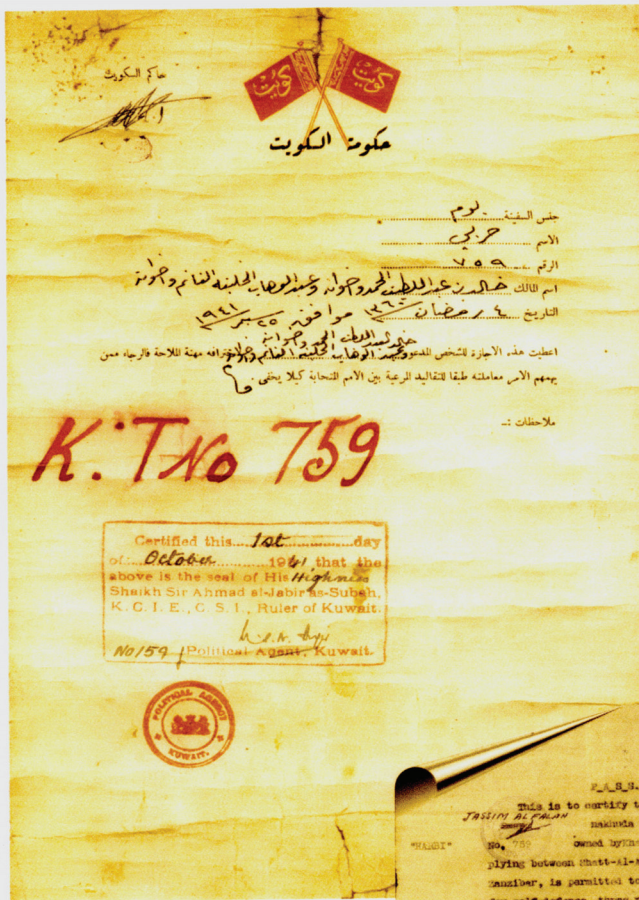 حاكم الكويت
كويت
كويت
حكومة الكويت
جنس السفينة بوم
الاسم حربي
الرقم ٧٥٩
اسم المالك خالد عبد اللطيف الحمد واخوانه وعبد الوهاب الخليفه الغانم واخوانه
التاريخ ٤ رمضان ١٣٦٠ موافق ٢٥ سبتمبر ١٩٤١
خالد عبد اللطيف الحمد واخوانه
اعطيت هذه الاجازة للشخص المدعو وعبد الوهاب الخليفه الغانم واخوانه مهنة الملاحة فالرجاء ممن
يهمهم الامر معاملته طبقا للتقاليد المرعية بين الأمم المتحابة كيلا يخفى
ملاحظات :ـ
K.T No 759
Certified this 1st day
of October 1941 that the
above is the seal of His Highness
Shaikh Sir Ahmad al-Jabir as-Subah,
K.C.I.E., C.S.I., Ruler of Kuwait.
No 159 Political Agent, Kuwait.
POLITICAL AGENCY
KUWAIT.
P_A_S_S.
This is to certify t
JASSIM AL FALAH
nakhuda
"HARBI" No. 759 owned by Kha
plying between Shatt-Al-A
Zanzibar, is permitted to